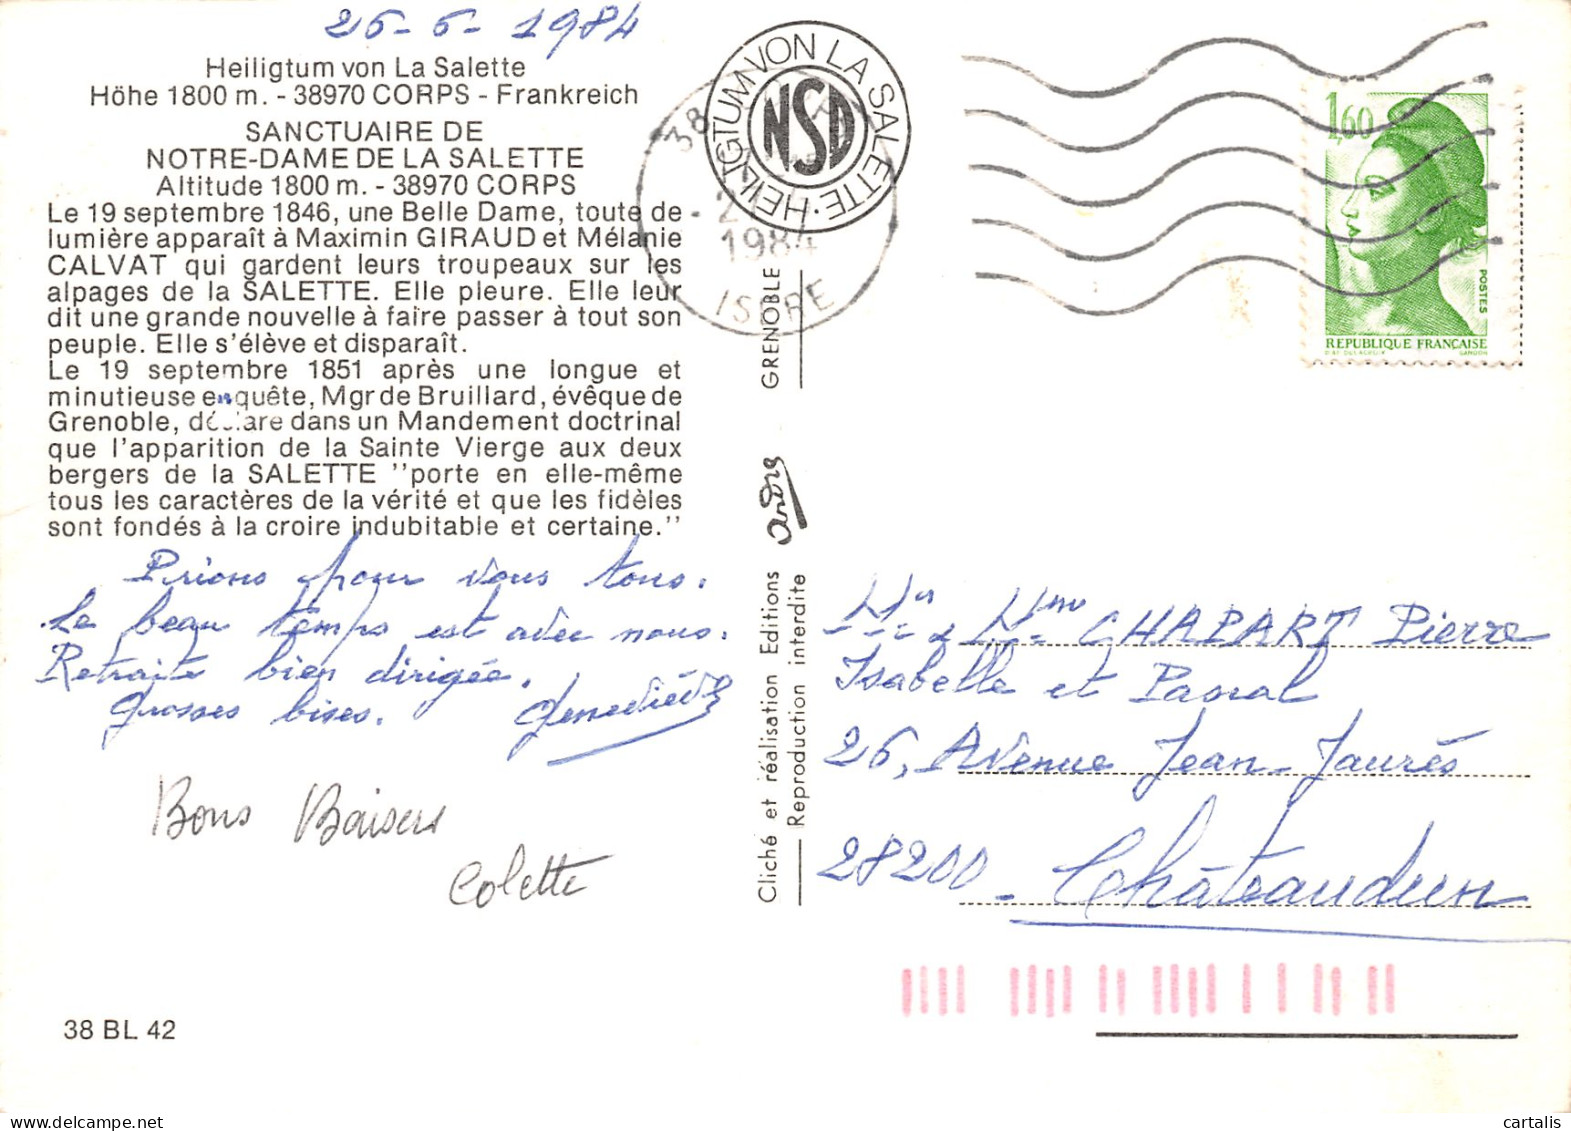 26-6-1984
Heiligtum von La Salette
Höhe 1800 m. - 38970 CORPS - Frankreich
SANCTUAIRE DE
NOTRE-DAME DE LA SALETTE
Altitude 1800 m. - 38970 CORPS
Le 19 septembre 1846, une Belle Dame, toute de
lumière apparaît à Maximin GIRAUD et Mélanie
CALVAT qui gardent leurs troupeaux sur les
alpages de la SALETTE. Elle pleure. Elle leur
dit une grande nouvelle à faire passer à tout son
peuple. Elle s'élève et disparaît.
Le 19 septembre 1851 après une longue et
minutieuse enquête, Mgr de Bruillard, évêque de
Grenoble, déclare dans un Mandement doctrinal
que l'apparition de la Sainte Vierge aux deux
bergers de la SALETTE "porte en elle-même
tous les caractères de la vérité et que les fidèles
sont fondés à la croire indubitable et certaine."
Prions pour vous tous.
Le beau temps est avec nous.
Retraite bien dirigée.
Grosses bises. Geneviève
Bons Baisers
Colette
38 BL 42
HEILIGTUM VON LA SALETTE
NSD
38
1984
ISERE
GRENOBLE
andré
Cliché et réalisation Editions
Reproduction interdite
1,60
POSTES
REPUBLIQUE FRANÇAISE
D'AP. DELACROIX GANDON
Mr & Mme CHAPART Pierre
Isabelle et Pascal
26, Avenue Jean-Jaurés
28200 - Châteaudun
cartalis